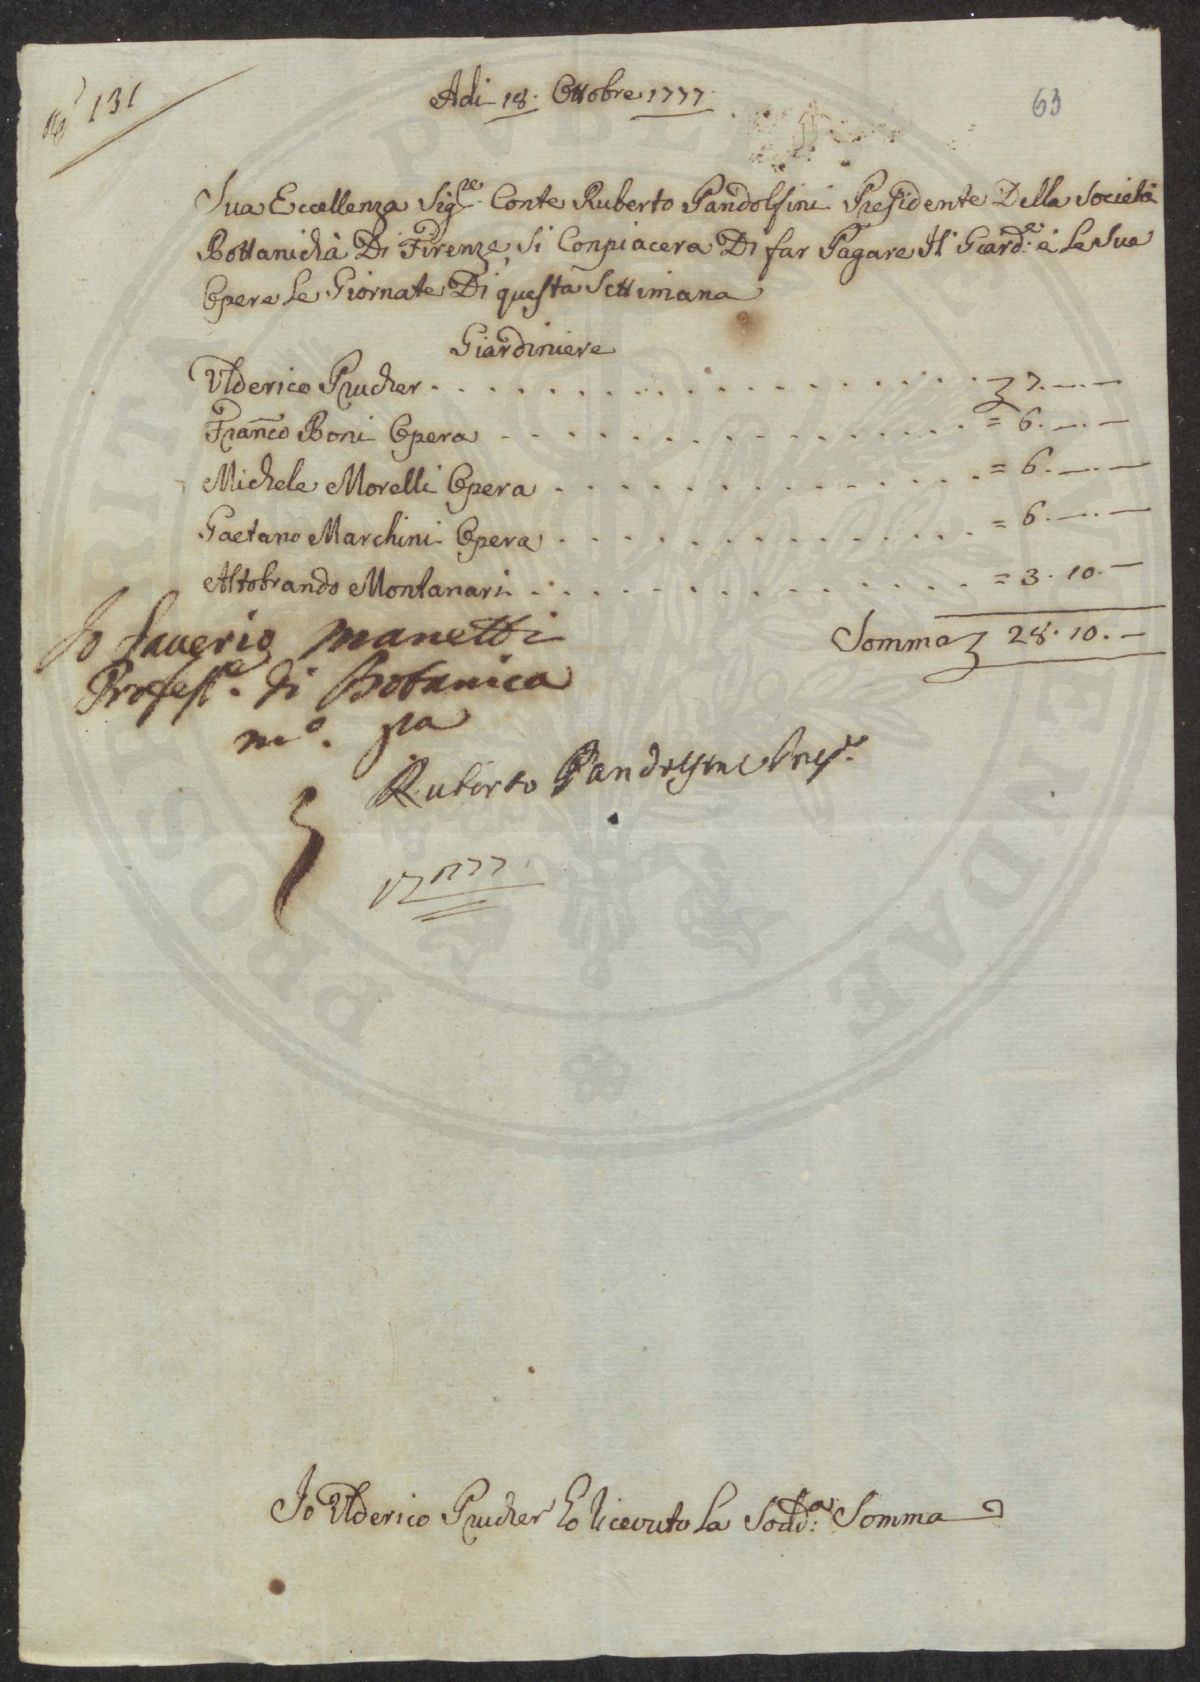 N.º 131
Adi 18. Ottobre 1777.
63
Sua Eccellenza Sig.re Conte Ruberto Pandolfini Presidente Della Società
Bottanicha Di Firenze, Si Conpiacera Di far Pagare Il Giard.e e Le Sue
Opere Le Giornate Di questa Settimana
Giardiniere
Ulderico Prucher . . . . . . . . . . . . . . . . 7.—.—
Franco Boni Opera . . . . . . . . . . . . . . . = 6.—.—
Michele Morelli Opera . . . . . . . . . . . . . = 6.—.—
Gaetano Marchini Opera . . . . . . . . . . . . = 6.—.—
Altobrando Montanari . . . . . . . . . . . . . = 3.10.—
Somma 28.10.—
Io Saverio Manetti
Profess.e di Botanica
m.o pa
Ruberto Pandolfini Pres.te
1777.
Io Ulderico Prucher ho ricevuto La Sodd.a Somma
PUBLICAE
PROSPERITATI